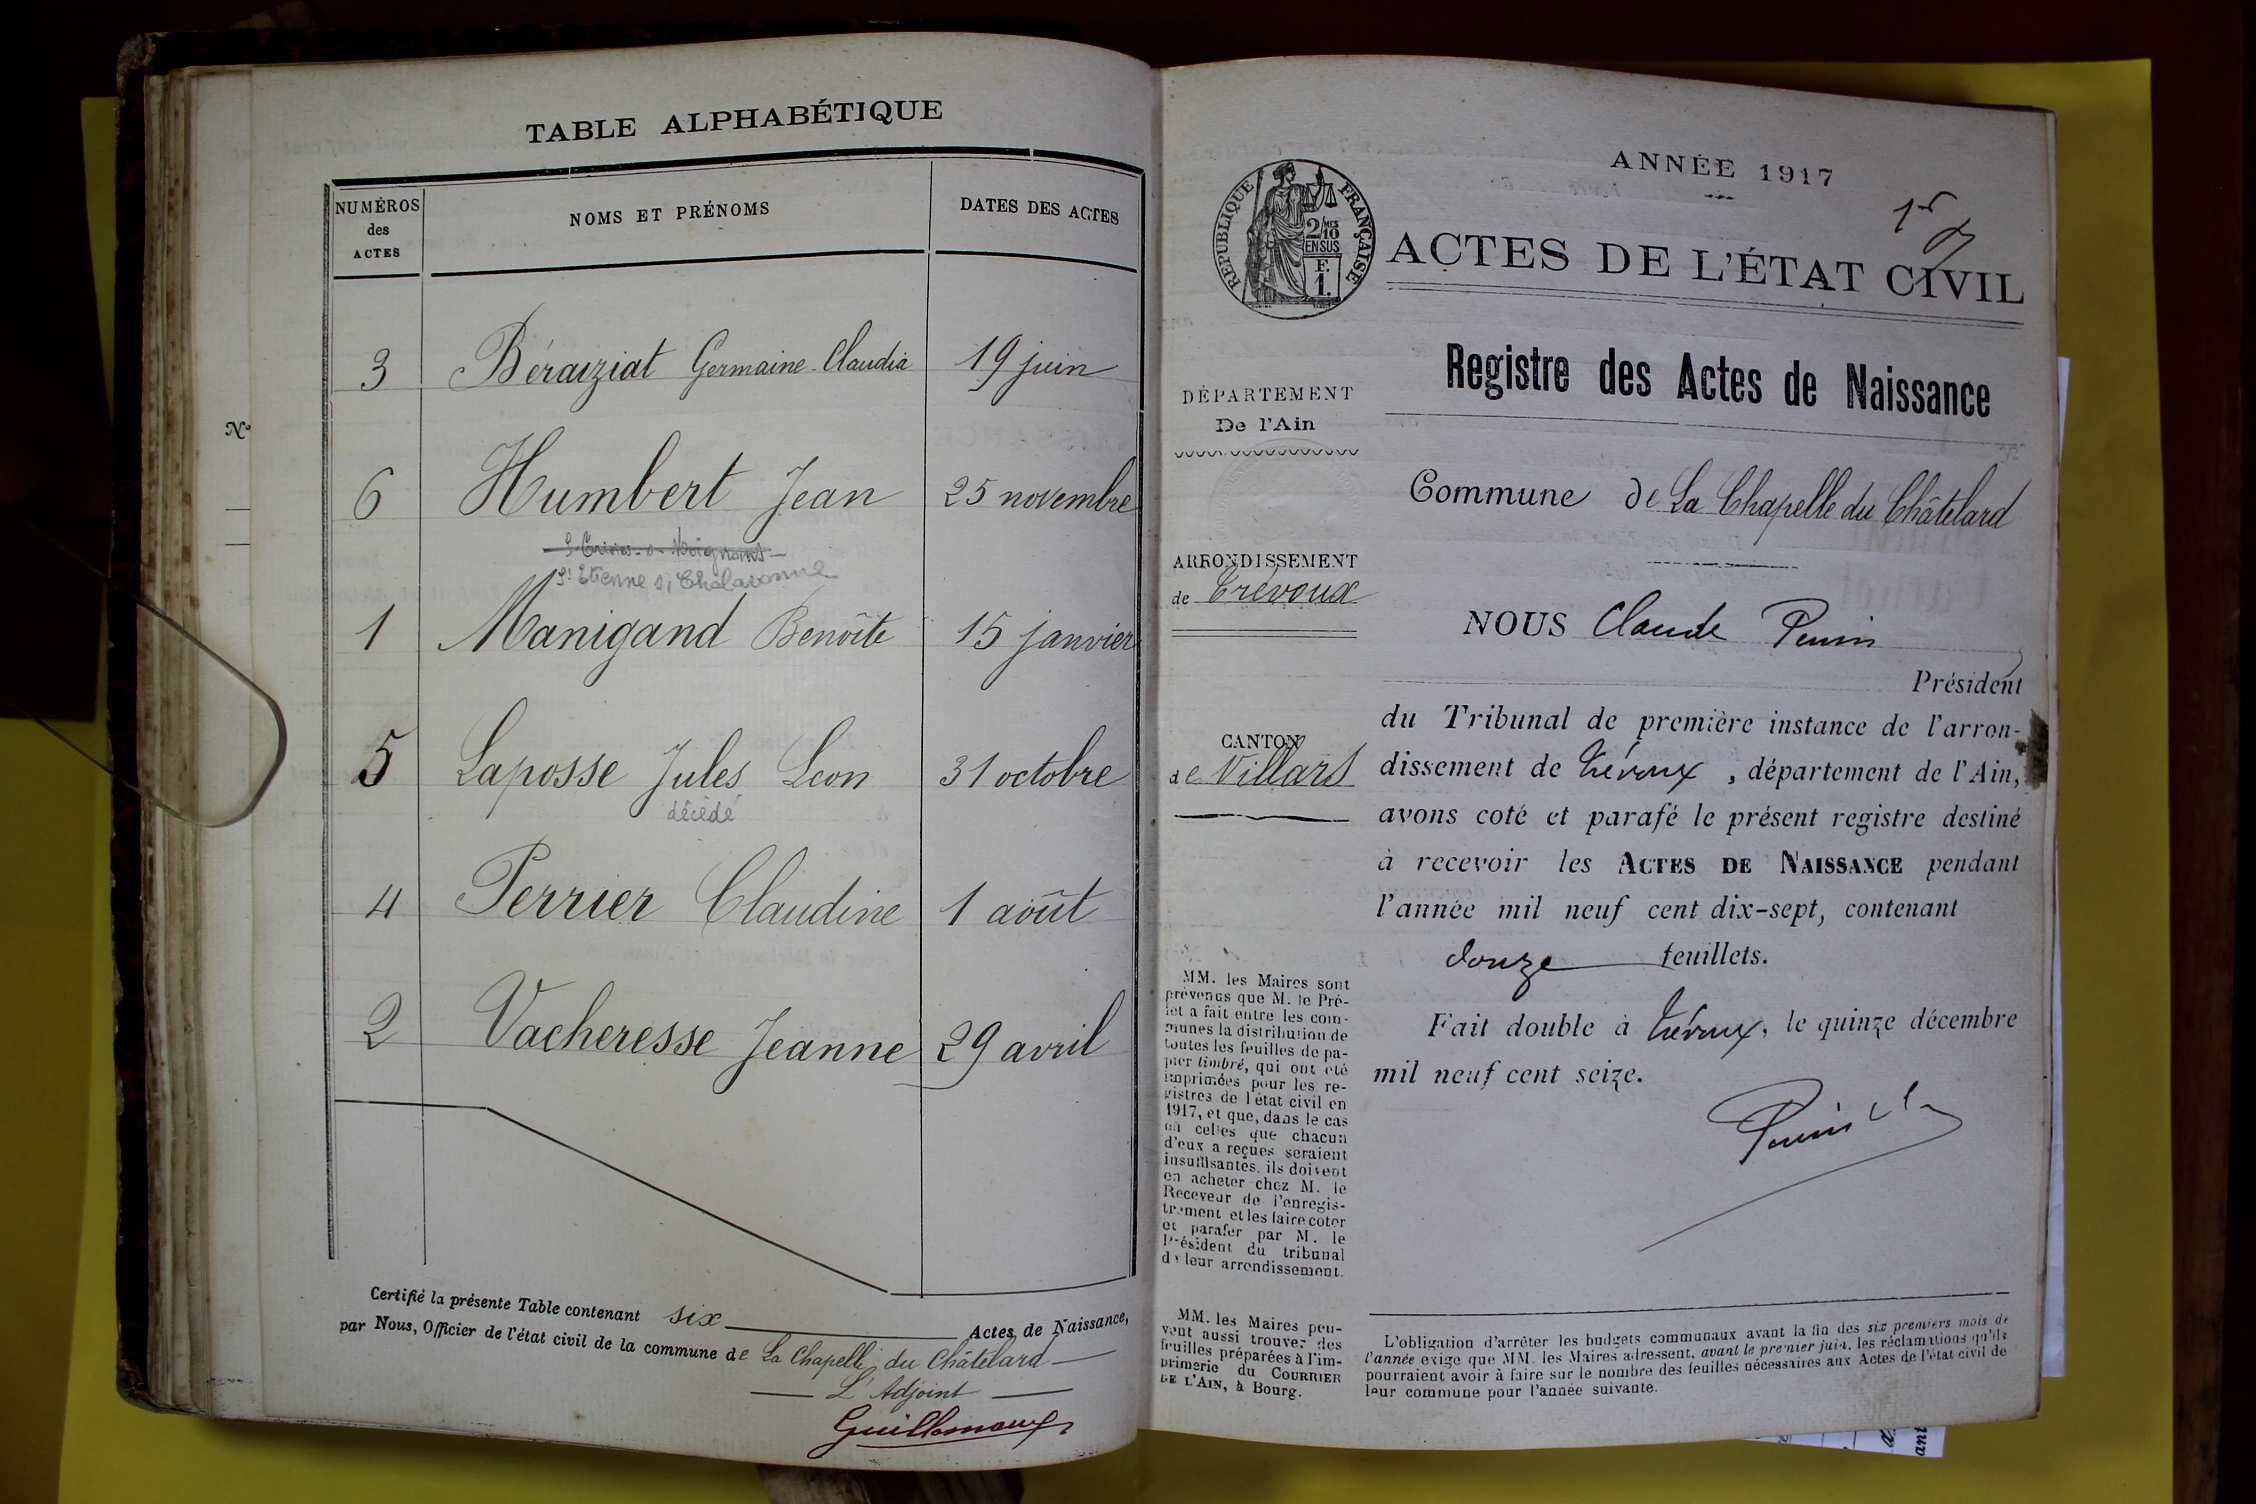 TABLE ALPHABÉTIQUE
NUMÉROS
des
ACTES
NOMS ET PRÉNOMS
DATES DES ACTES
3 Béraziat Germaine-Claudia 19 juin
N°
6 Humbert Jean 25 novembre
St Etienne s/ Chalaronne
1 Manigand Benoîte 15 janvier
5 Laposse Jules Leon 31 octobre
décédé
4 Perrier Claudine 1 août
2 Vacheresse Jeanne 29 avril
Certifié la présente Table contenant six Actes de Naissance,
par Nous, Officier de l'état civil de la commune de La Chapelle du Châtelard
L'Adjoint
ANNÉE 1917
1er
RÉPUBLIQUE FRANÇAISE
2/10
EN SUS
F.
1.
ACTES DE L'ÉTAT CIVIL
Registre des Actes de Naissance
DÉPARTEMENT
De l'Ain
Commune de La Chapelle du Châtelard
ARRONDISSEMENT
de Trévoux
NOUS Claude
Président
CANTON
de Villars
du Tribunal de première instance de l'arron-
dissement de Trévoux, département de l'Ain,
avons coté et parafé le présent registre destiné
à recevoir les ACTES DE NAISSANCE pendant
l'année mil neuf cent dix-sept, contenant
douze feuillets.
Fait double à Trévoux, le quinze décembre
mil neuf cent seize.
MM. les Maires sont
prévenus que M. le Pré-
fet a fait entre les com-
munes la distribution de
toutes les feuilles de pa-
pier timbré, qui ont été
imprimées pour les re-
gistres de l'état civil en
1917, et que, dans le cas
où celles que chacun
d'eux a reçues seraient
insuffisantes, ils doivent
en acheter chez M. le
Receveur de l'enregis-
trement et les faire coter
et parafer par M. le
Président du tribunal
de leur arrondissement.
MM. les Maires peu-
vent aussi trouver des
feuilles préparées à l'im-
primerie du COURRIER
DE L'AIN, à Bourg.
L'obligation d'arrêter les budgets communaux avant la fin des six premiers mois de
l'année exige que MM. les Maires adressent, avant le premier juin, les réclamations qu'ils
pourraient avoir à faire sur le nombre des feuilles nécessaires aux Actes de l'état civil de
leur commune pour l'année suivante.